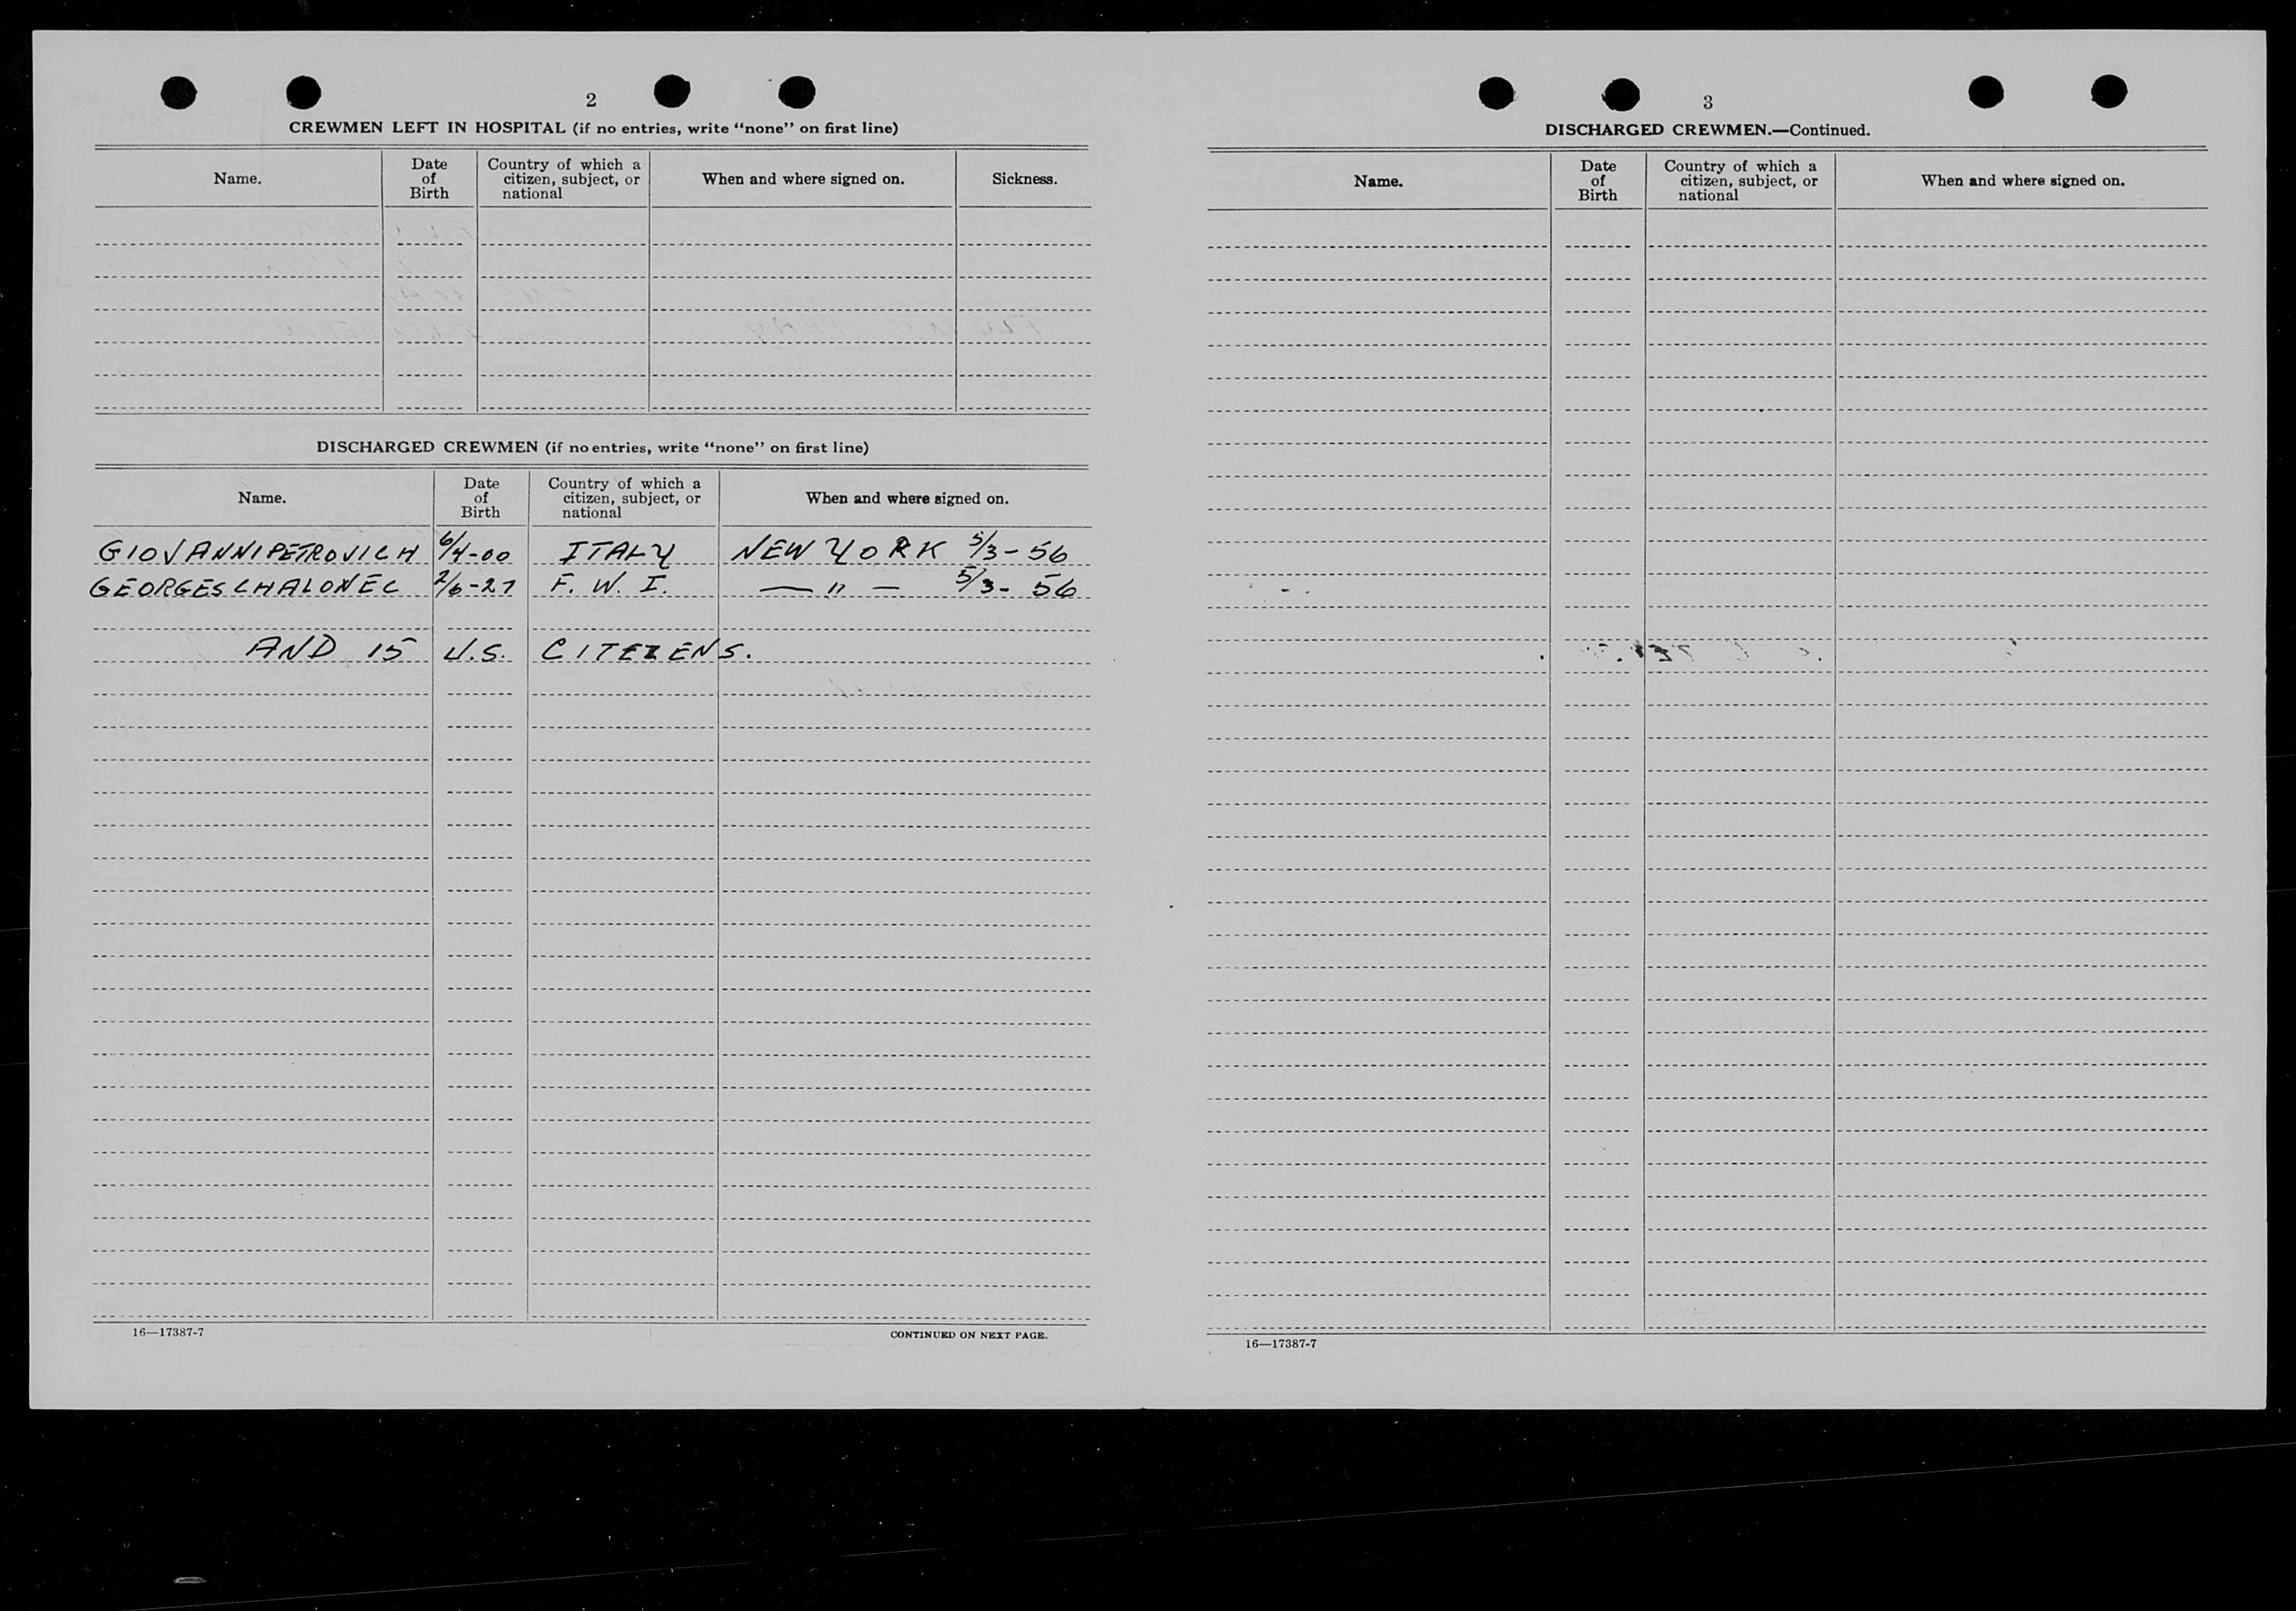 2
CREWMEN LEFT IN HOSPITAL (if no entries, write “none” on first line)
Name.
Date of Birth
Country of which a citizen, subject, or national
When and where signed on.
Sickness.
DISCHARGED CREWMEN (if no entries, write “none” on first line)
Name.
Date of Birth
Country of which a citizen, subject, or national
When and where signed on.
GIOVANNI PETROVICH 6/4-00 ITALY NEW YORK 5/3-56
GEORGES CHALONEC 2/6-27 F. W. I. — " — 5/3-56
AND 15 U.S. CITEZENS.
16—17387-7
CONTINUED ON NEXT PAGE.
3
DISCHARGED CREWMEN.—Continued.
Name.
Date of Birth
Country of which a citizen, subject, or national
When and where signed on.
16—17387-7